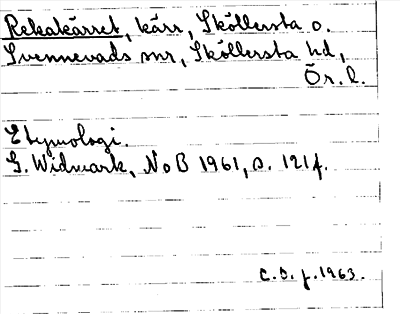 Rekakärret, kärr, Sköllersta o.
Svennevads snr, Sköllersta hd,
Ör. l.
Etymologi.
G. Widmark, NoB 1961, s. 121 f.
C. S. f. 1963.